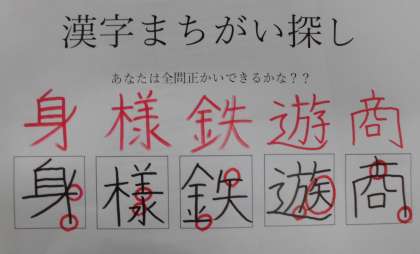 漢字まちがい探し
あなたは全問正かいできるかな？？
身 様 鉄 遊 商
身 様 鉄 遊 商